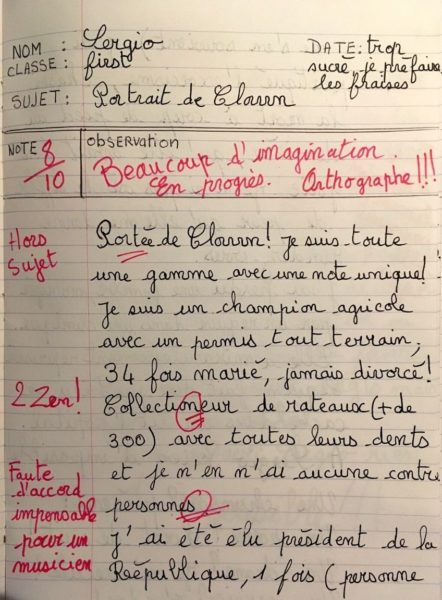 NOM : Sergio
DATE: trop
CLASSE: first
sucré, je préfaire
les fraises
SUJET: Portrait de Clown
NOTE 8/10
observation
Beaucoup d'imagination.
En progrès. Orthographe!!!
Hors
Sujet
Portée de Clown! Je suis toute
une gamme avec une note unique!
Je suis un champion agricole
avec un permis tout terrain;
34 fois marié, jamais divorcé!
2 Zen!
Collectioneur de rateaux (+ de
300) avec toutes leurs dents
Faute
d'accord
impensable
pour un
musicien
et je n'en n'ai aucune contre
personnes
J'ai été élu président de la
République, 1 fois (personne